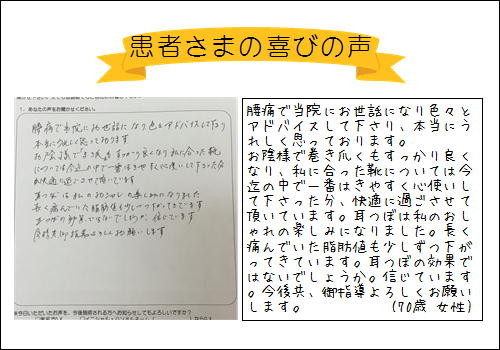 患者さまの喜びの声
1. あなたの声をお聞かせください。
腰痛で当院にお世話になり色々とアドバイスして下り
本当にうれしく思っております
お陰様で巻き爪もすっかり良くなり私に合った靴
については今迄の中で一番はきやすく心使いして下さった分
快適に過ごさせて頂いています
耳つぼは私のおしゃれの楽しみになりました
長く痛んでいた脂肪値も少しずつ下がってきています
耳つぼの効果ではないでしょうか。信じています
今後共御指導よろしくお願いします
腰痛で当院にお世話になり色々と
アドバイスして下さり、本当にう
れしく思っております。
お陰様で巻き爪くもすっかり良く
なり、私に合った靴については今
迄の中で一番はきやすく心使いし
て下さった分、快適に過ごさせて
頂いています。耳つぼは私のおし
ゃれの楽しみになりました。長く
痛んでいた脂肪値も少しずつ下が
ってきています。耳つぼの効果で
はないでしょうか。信じています
。今後共、御指導よろしくお願い
します。 (70歳 女性)